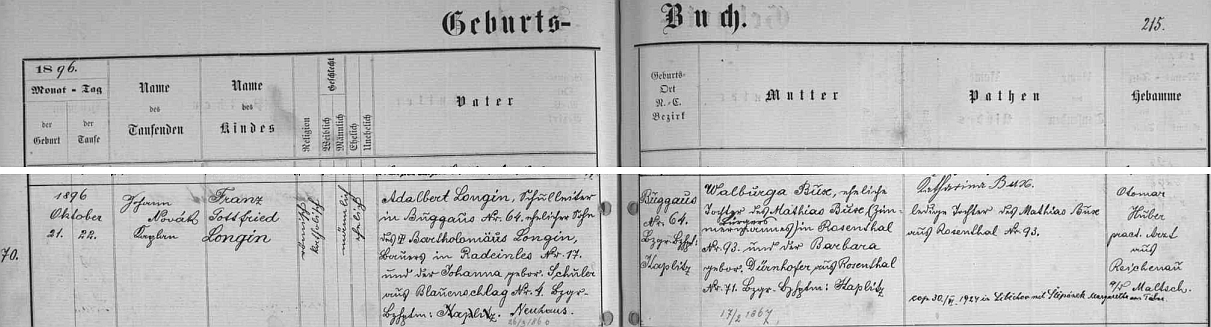 Geburts-
Buch.
215.
1896.
Monat - Tag
der Geburt
der Taufe
Name des Taufenden
Name des Kindes
Religion
Geschlecht
Weiblich
Männlich
Ehelich
Unehelich
Vater
Geburts-Ort N.-C. Bezirk
Mutter
Pathen
Hebamme
70.
1896
Oktober
21. 22.
Johann
Novák
Kaplan
Franz
Gottfried
Longin
römisch
katholisch
männlich
ehelich
Adalbert Longin, Schulleiter
in Buggaus Nr. 64, ehelicher Sohn
des Bartholomäus Longin,
Bauers in Radeinles Nr. 17.
und der Johanna gebor. Schuler
aus Blauenschlag Nr. 4. Bzgr-
Bzhptm: Kaplitz. Neuhaus.
26/3 1860
Buggaus
Nr. 64.
Bzgr. Bzhpt:
Kaplitz
Walburga Bux, eheliche
Tochter des Mathias Bux, Zim-
Bürgers
mermannes in Rosenthal
Nr. 93. und der Barbara
gebor. Dürnhofer aus Rosenthal
Nr. 71. Bzgr. Bzhptm: Kaplitz
17/2 1867.
Katharina Bux.
ledige Tochter des Mathias Bux
aus Rosenthal Nr. 93.
cop 30/VI. 1924 in Libichov mit Štěpánek Margarethe aus Tabor.
Otomar
Huber
pract. Arzt
aus
Reichenau
a/d Maltsch.